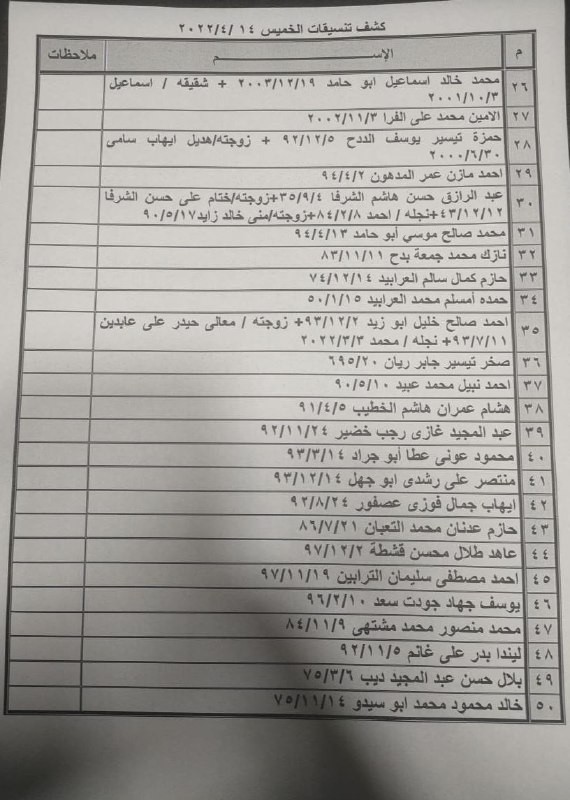 كشف تنسيقات الخميس ١٤ /٢٠٢٢/٤
م الإســـم ملاحظات
٢٦ محمد خالد اسماعيل ابو حامد ٢٠٠٣/١٢/١٩ + شقيقه / اسماعيل
٢٠٠١/١٠/٣
٢٧ الامين محمد على الفرا ٢٠٠٢/١١/٣
٢٨ حمزة تيسير يوسف الددح ٩٢/١٢/٥ + زوجته/هديل ايهاب سامى
٢٠٠٠/٦/٣٠
٢٩ احمد مازن عمر المدهون ٩٤/٤/٢
٣٠ عبد الرازق حسن هاشم الشرفا ٣٥/٩/٤+زوجته/ختام على حسن الشرفا
٤٣/١٢/١٢+نجله / احمد ٨٤/٢/٨+زوجته/منى خالد زايد٩٠/٥/١٧
٣١ محمد صالح موسي أبو حامد ٩٤/٤/١٣
٣٢ نازك محمد جمعة بدح ٨٣/١١/١١
٣٣ حازم كمال سالم العرابيد ٧٤/١٢/١٤
٣٤ حمده أمسلم محمد العرابيد ٥٠/١/١٥
٣٥ احمد صالح خليل ابو زيد ٩٣/١٢/٢+ زوجته / معالى حيدر على عابدين
٩٣/٧/١١+ نجله / محمد ٢٠٢٢/٣/٣
٣٦ صخر تيسير جابر ريان ٦٩٥/٢٠
٣٧ احمد نبيل محمد عبيد ٩٠/٥/١٠
٣٨ هشام عمران هاشم الخطيب ٩١/٤/٥
٣٩ عبد المجيد غازى رجب خضير ٩٢/١١/٢٤
٤٠ محمود عونى عطا أبو جراد ٩٣/٣/١٤
٤١ منتصر على رشدى ابو جهل ٩٣/١٢/١٤
٤٢ ايهاب جمال فوزى عصفور ٩٢/٨/٢٤
٤٣ حازم عدنان محمد التعبان ٨٦/٧/٢١
٤٤ عاهد طلال محسن قشطة ٩٧/١٢/٢
٤٥ احمد مصطفى سليمان الترابين ٩٧/١١/١٩
٤٦ يوسف جهاد جودت سعد ٩٦/٢/١٠
٤٧ محمد منصور محمد مشتهى ٨٤/١١/٩
٤٨ ليندا بدر على غانم ٩٢/١١/٥
٤٩ بلال حسن عبد المجيد ديب ٧٥/٣/٦
٥٠ خالد محمود محمد ابو سيدو ٧٥/١١/١٤